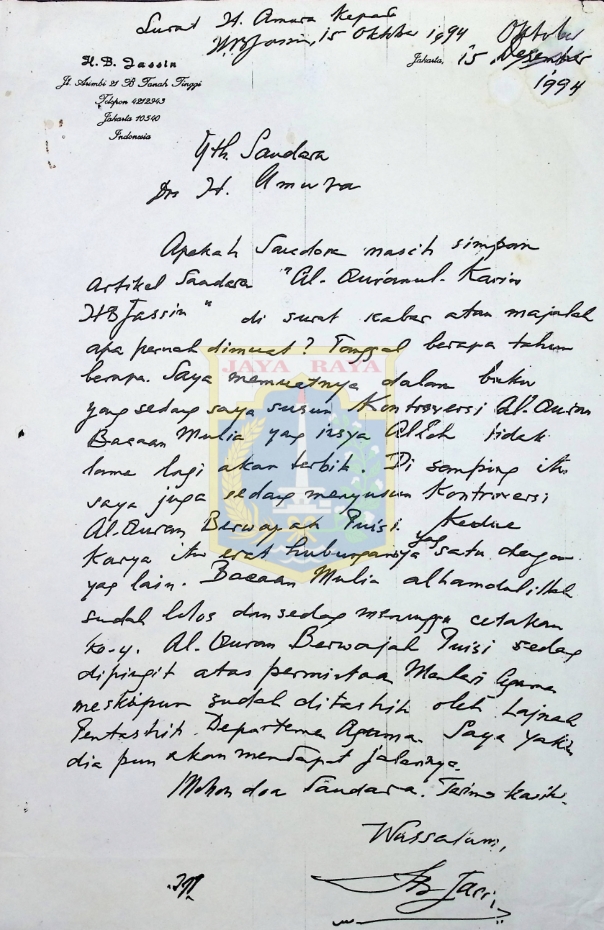 Surat H. Amura kepada
HB Jassin, 15 Oktober 1994
Oktober
Jakarta, 15 Desember
1994
H. B. Jassin
Jl. Arimbi 21 B Tanah Tinggi
Telepon 4212943
Jakarta 10540
Indonesia
Yth. Saudara
Drs H. Amura
Apakah Saudara masih simpan
artikel Saudara "Al-Qur'anul-Karim
HB Jassin" di surat kabar atau majalah
apa pernah dimuat? Tanggal berapa tahun
berapa. Saya memuatnya dalam buku
yang sedang saya susun Kontroversi Al-Quran
Bacaan Mulia yang insya Allah tidak
lama lagi akan terbit. Di samping itu
saya juga sedang menyusun Kontroversi
Al-Quran Berwajah Puisi. Kedua
karya itu erat hubungannya yag satu dengan
yag lain. Bacaan Mulia alhamdulillah
sudah lolos dan sedag menunggu cetakan
ke-4. Al-Quran Berwajah Puisi sedag
dipingit atas permintaan Menteri Agama
meskipun sudah ditashih oleh Lajnah
Pentashih Departemen Agama. Saya yakin
dia pun akan mendapat jalannya.
Mohon doa Saudara. Terima kasih.
Wassalam,
HB Jassin
JAYA RAYA